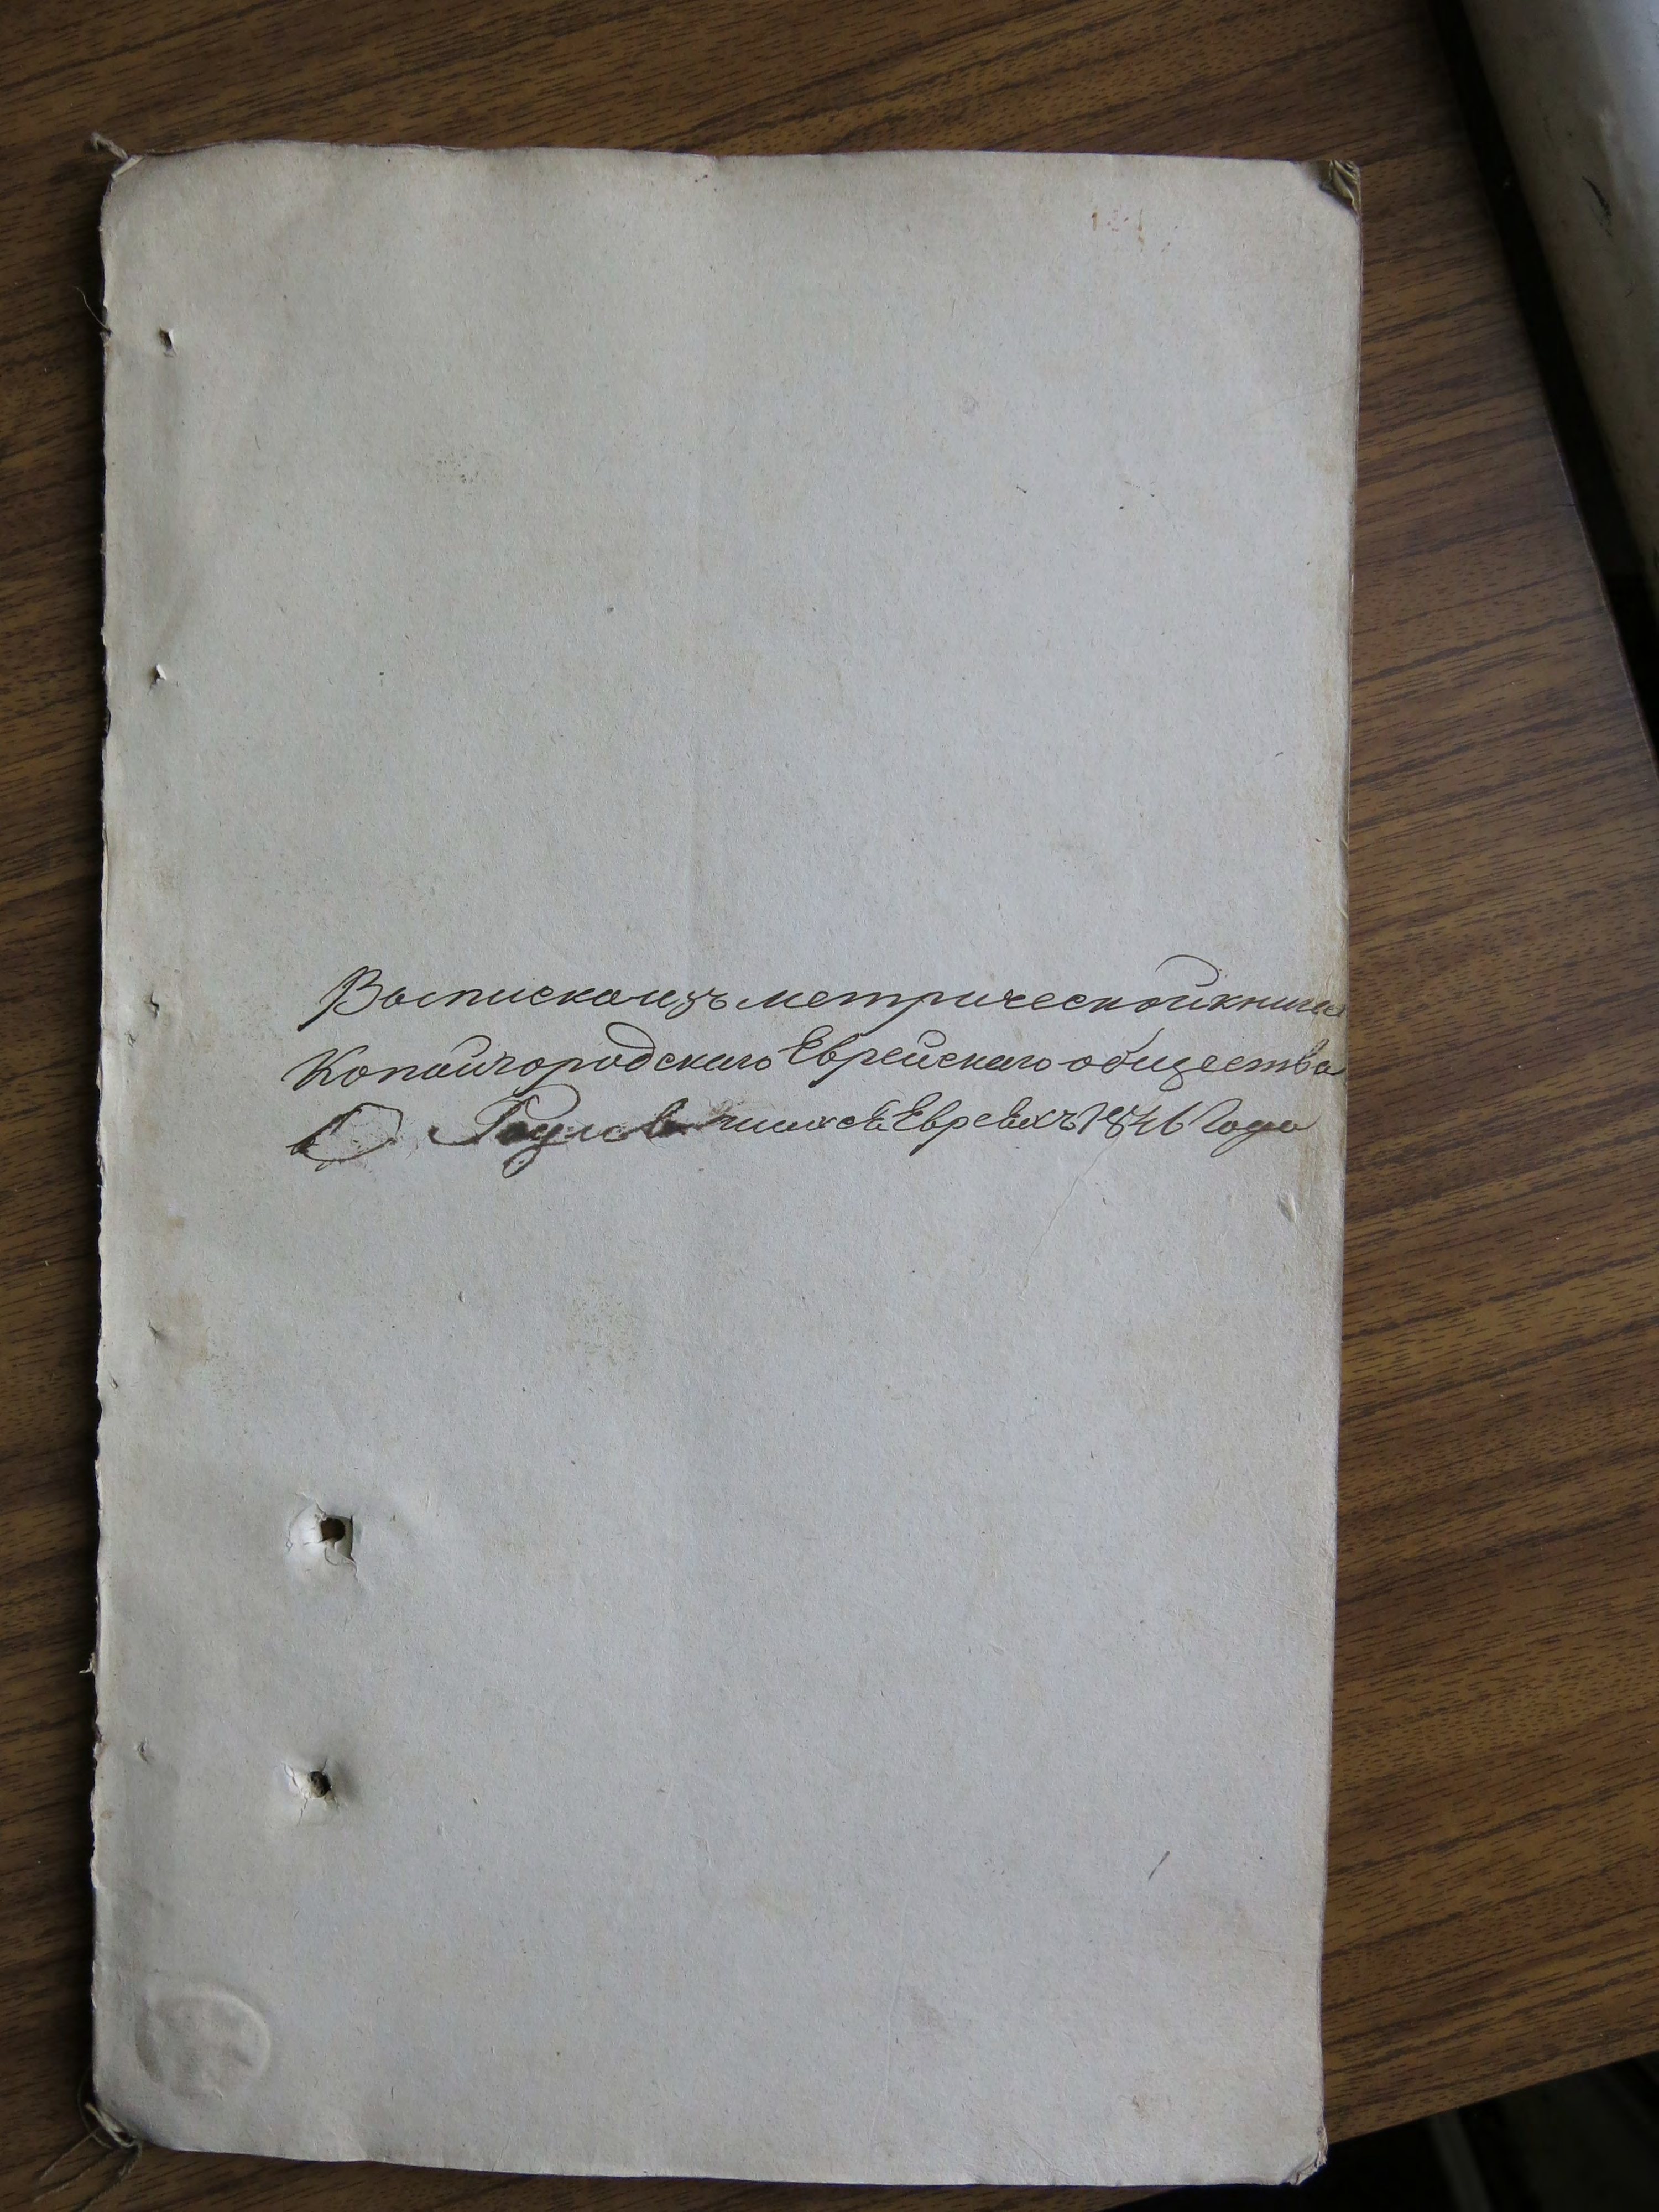 Выписка изъ метрической книги
Копайгородскаго Еврейскаго общества
О Родив шихся Евреяхъ 1846 Года